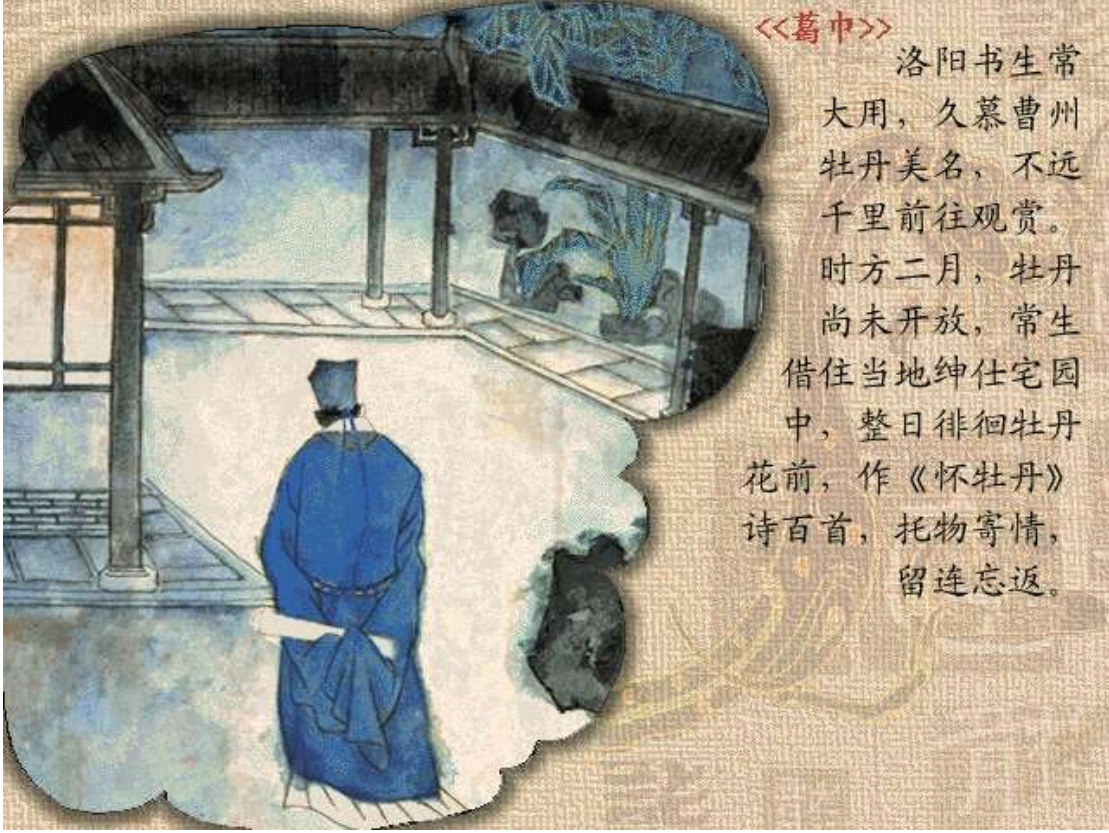 <<葛巾>>
洛阳书生常
大用，久慕曹州
牡丹美名，不远
千里前往观赏。
时方二月，牡丹
尚未开放，常生
借住当地绅仕宅园
中，整日徘徊牡丹
花前，作《怀牡丹》
诗百首，托物寄情，
留连忘返。